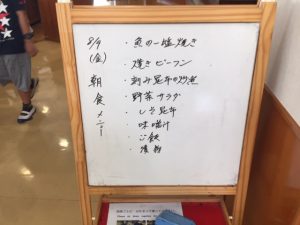 8/9
(金)
朝食メニュー
・魚の一塩焼き
・焼きビーフン
・刻み昆布の炒煮
・野菜サラダ
・しそ昆布
・味噌汁
・ご飯
・漬物